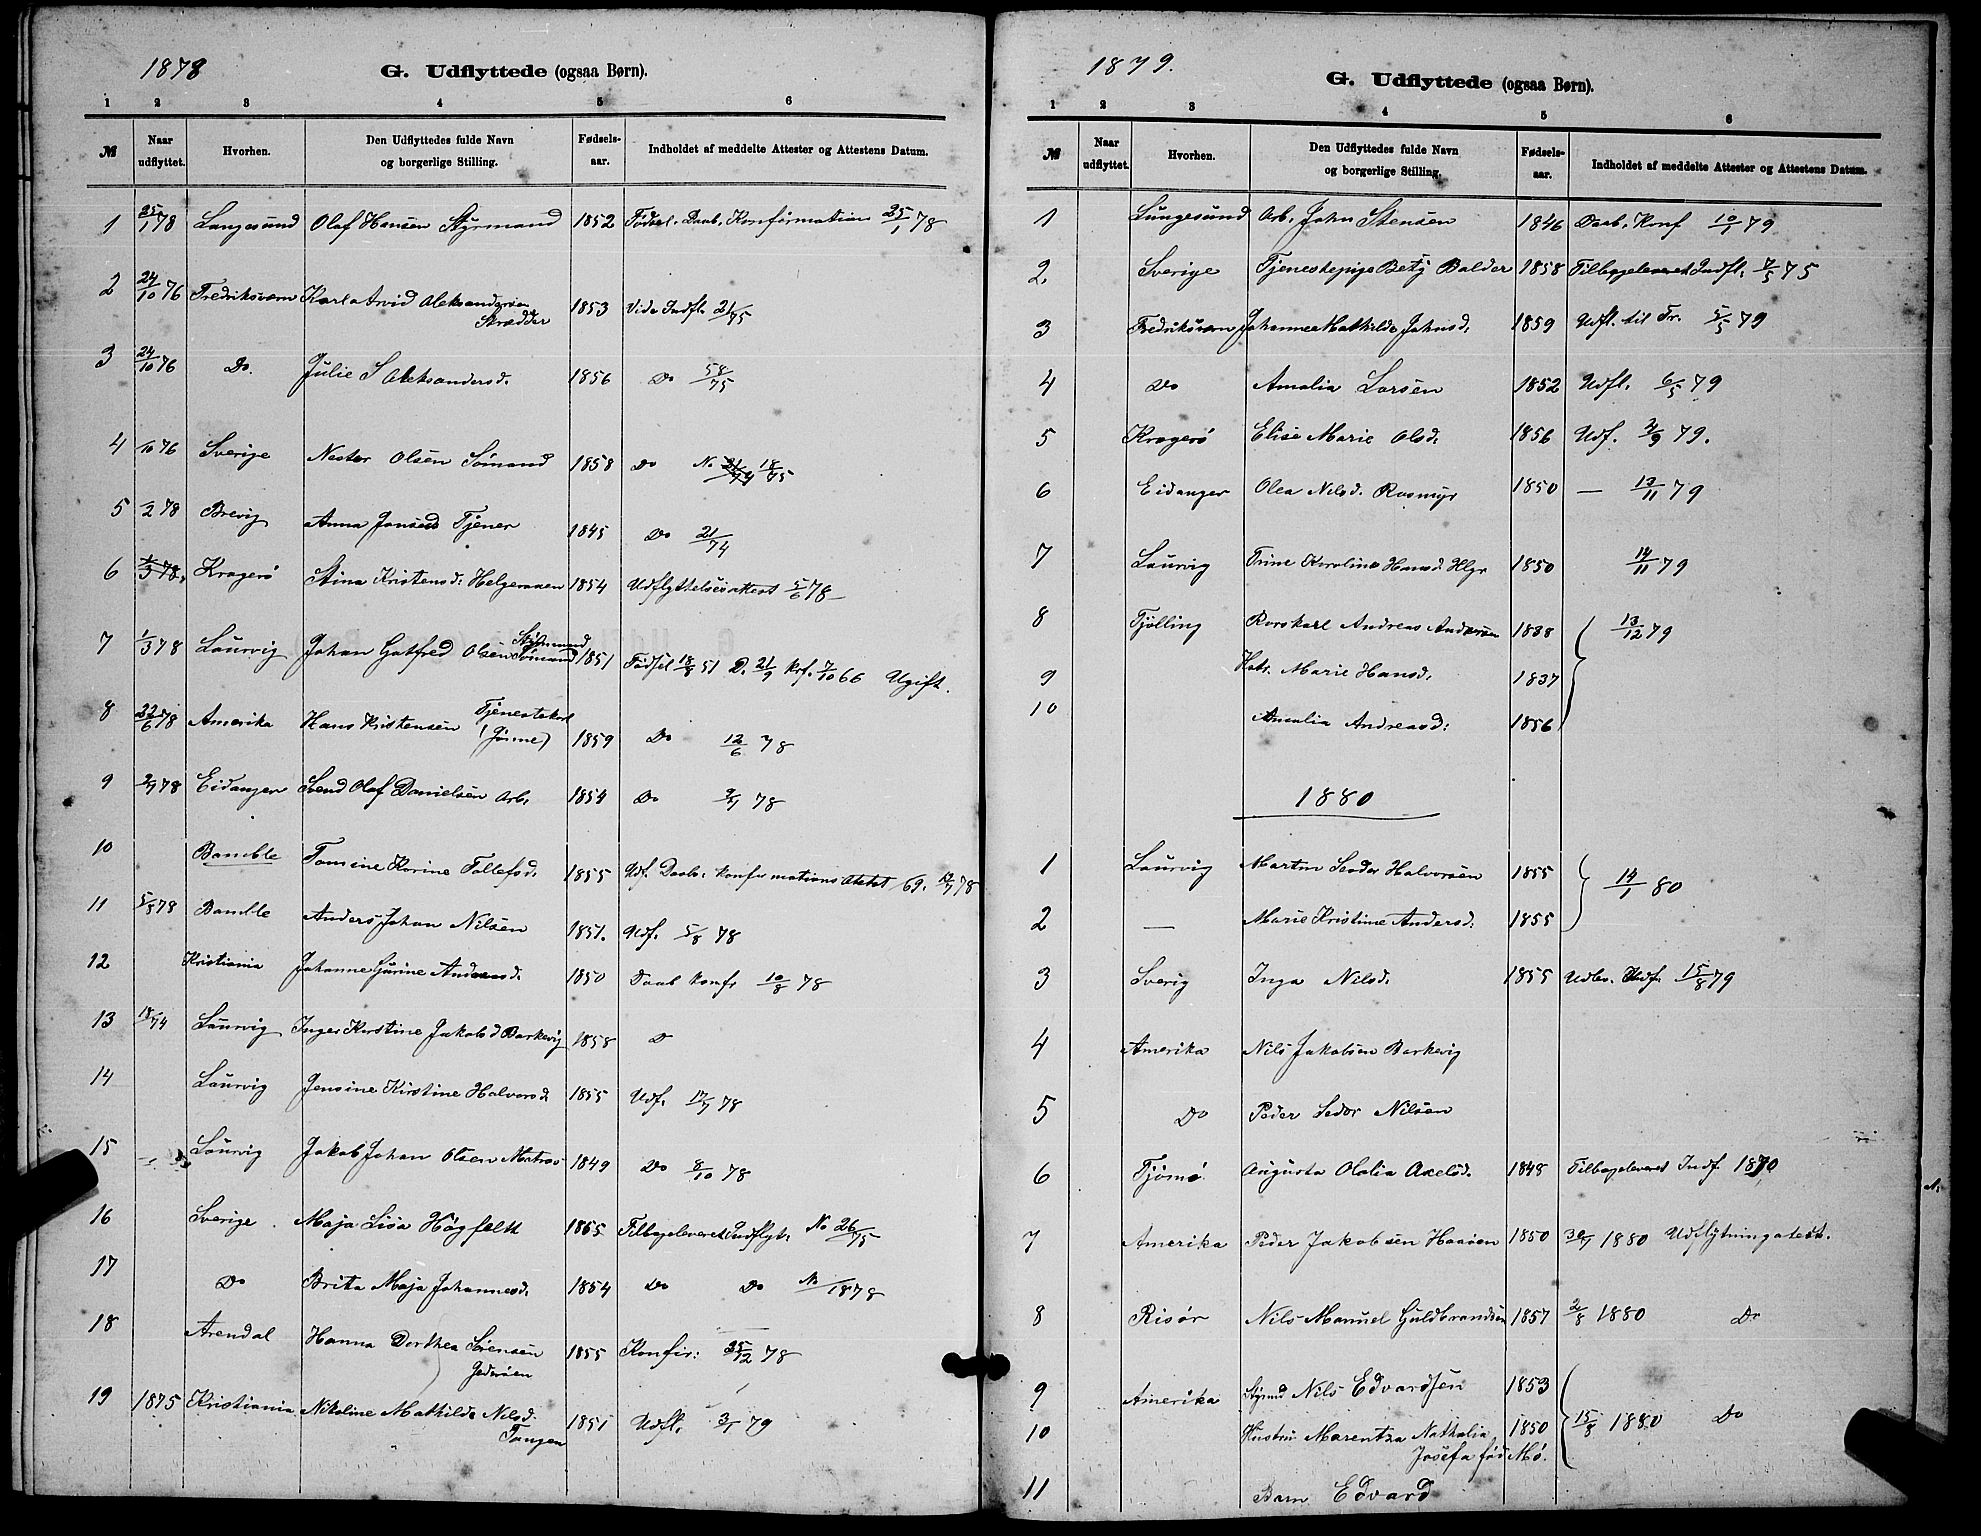 1878
G. Udflyttede (ogsaa Børn).
1 2 3 4 5 6
№ Naar udflyttet. Hvorhen. Den Udflyttedes fulde Navn og borgerlige Stilling. Fødsels-aar. Indholdet af meddelte Attester og Attestens Datum.
1 25/1 78 Langesund Olaf Hansen Styrmand 1852 Fødsel. Daab. Konfirmation 25/1 78
2 24/10 76 Fredriksværn Karl Arvid Aleksandersen 1853 Vide Indfl. 21/75
Skrædder
3 24/10 76 Do. Julie S Aleksandersd. 1856 Do 58/75
4 10 76 Sverige Nester Olsen Sømand 1858 Do No 18/75
5 2 78 Brevig Anna Jonsed Tjener 1845 Do 21/74
6 1/3 78. Kragerø Stina Kristensd. Helgeraaen 1854 Udflyttelsesattest 5/6 78
7 1/3 78 Laurvig Johan Gotfred Olsen Styrmand 1851 Fødsel 18/8 51 D. 21/9 Krf. 7/10 66 Ugift.
8 22/6 78 Amerika Hans Kristensen Tjenestekarl (Gjønne) 1859 Do 12/6 78
9 2/7 78 Eidanger Svend Olaf Danielsen Arb. 1854 Do 2/7 78
10 Bamble Tomine Karine Tollefsd. 1855 Udf. Daabs. konfirmations Attest 69. 12/7 78
11 5/8 78 Bamble Anders Johan Nilsen 1851. Udf. 5/8 78
12 Kristiania Johanne Gurine Andersd. 1850 Daab Konf. 10/8 78
13 18/74 Laurvig Inger Kirstine Jakobsd Barkevig 1858 D
14 Laurvig Jensine Kirstine Halvorsd. 1855 Udf. 17/7 78
15 Laurvig Jakob Johan Olsen Matros 1849 Do 8/10 78
16 Sverige. Maja Lisa Høgfeldt 1865 Tilbageleveret Indflyt. No 26/75
17 Do Brita Maja Johannesd. 1854 Do Do No /1878
18 Arendal Hanna Dorthea Sørensen 1855 Konfir: 12 78
19 1875 Kristiania Nikoline Mathilde Nilsd. Tangen 1851 Udfl. 3/1 79
1879.
G. Udflyttede (ogsaa Børn).
1 2 3 4 5 6
№ Naar udflyttet. Hvorhen. Den Udflyttedes fulde Navn og borgerlige Stilling. Fødsels-aar. Indholdet af meddelte Attester og Attestens Datum.
1 Langesund Arb. John Stensen 1846 Daab. Konf 10/1 79
2 Sverige Tjenestepige Betzy Balder 1858 Tilbageleveret Indfl. 7/5 75
3 Fredriksværn Johanne Mathilde Johnsd. 1859 Udfl. til Fr. 5/5 79
4 Do Amalia Larsen 1852 Udfl. 6/5 79
5 Kragerø Elise Marie Olsd. 1856 Udf. 2/9 79.
6 Eidanger Olea Nilsd. Rosmyr 1850 — 13/11 79
7 Laurvig Trine Karoline Hansd. Hlgr 1850 14/11 79
8 Tjølling Rorskarl Andreas Andersen 1838 13/12 79
9 Hstr. Marie Hansd. 1837
10 Amalia Andreasd: 1856
1880
1 Laurvig Martin Seder Halvorsen 1855 14/1 80
2 — Marie Kristine Andersd. 1855
3 Sverig Inga Nilsd. 1855 Udf. 15/8 79
4 Amerika Nils Jakobsen Barkevig
5 Do Peder Sedor Nilsen
6 Tjømø Augusta Olalia Axelsd. 1848 Tilbageleveret Indf. 1870
7 Amerika Peder Jakobsen Haaøen 1850 30/7 1880 Udflytningsatest.
8 Risør Nils Manuel Guldbrandsen 1857 2/8 1880 Do
9 Amerika Styrmd Nils Edvardsen 1853
10 Hustru Marentza Nathalia 1850 15/8 1880 Do
Josefa fød Mø.
11 Barn Edvard